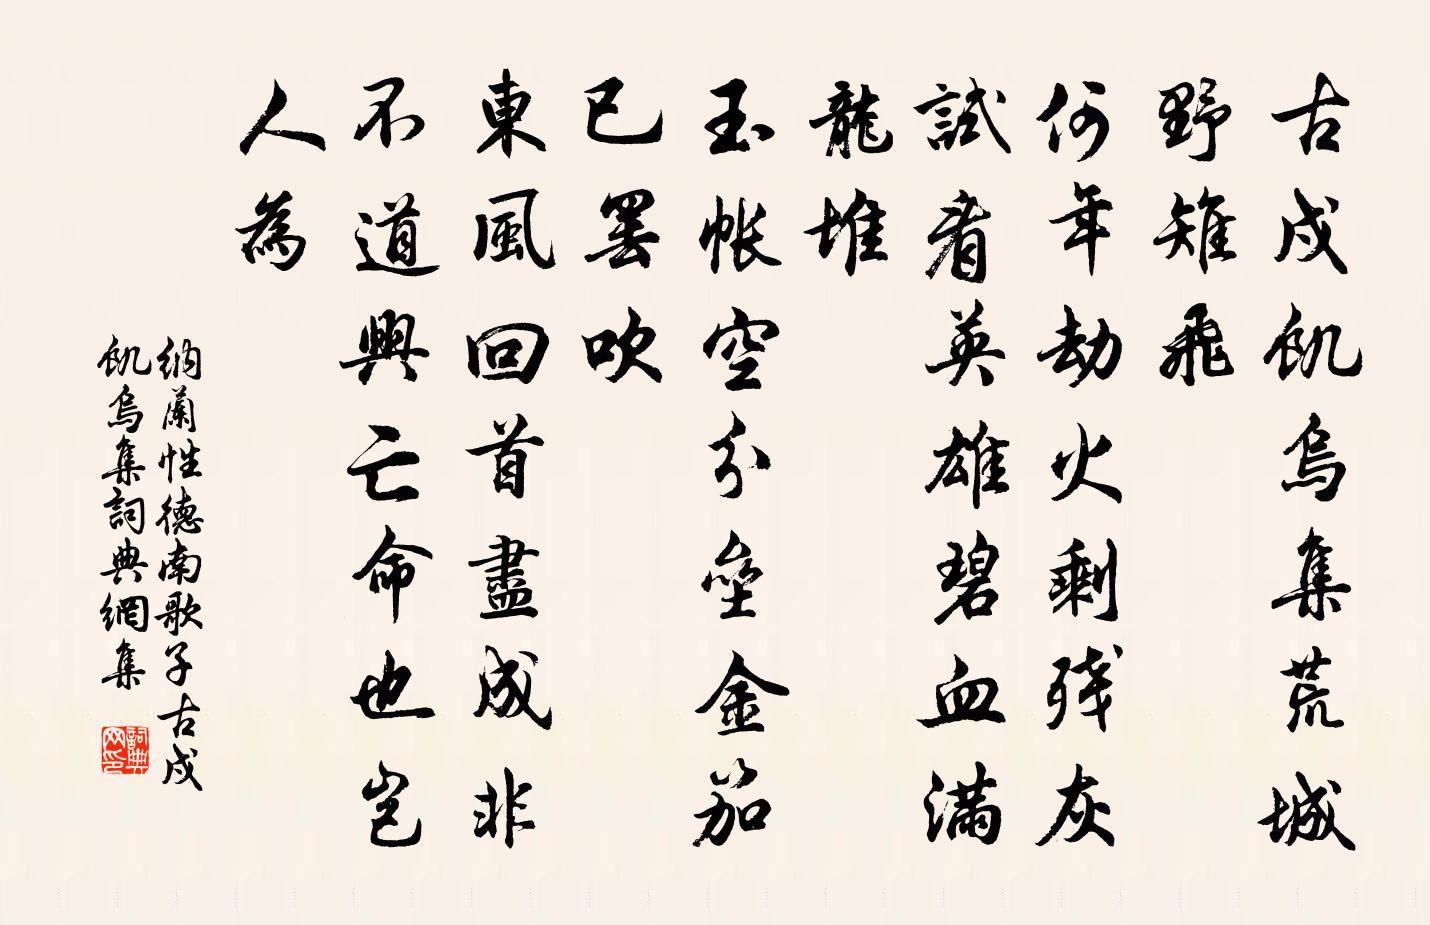 古戍飢烏集荒城
野雉飛
何年劫火剩殘灰
試看英雄碧血滿
龍堆
玉帳空分壘金笳
已罷吹
東風回首盡成非
不道興亡命也豈
人為
納蘭性德南歌子古戍
飢烏集詞典網集
詞典網印